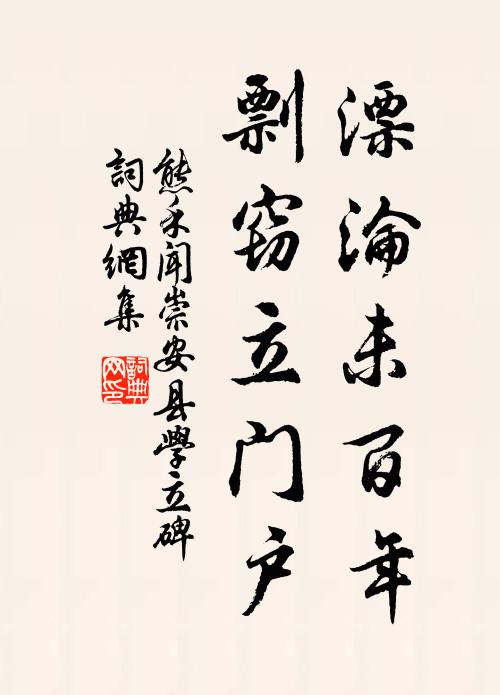 漂淪未百年
剽窃立门户
熊禾闻崇安县學立碑
詞典網集
詞典网印